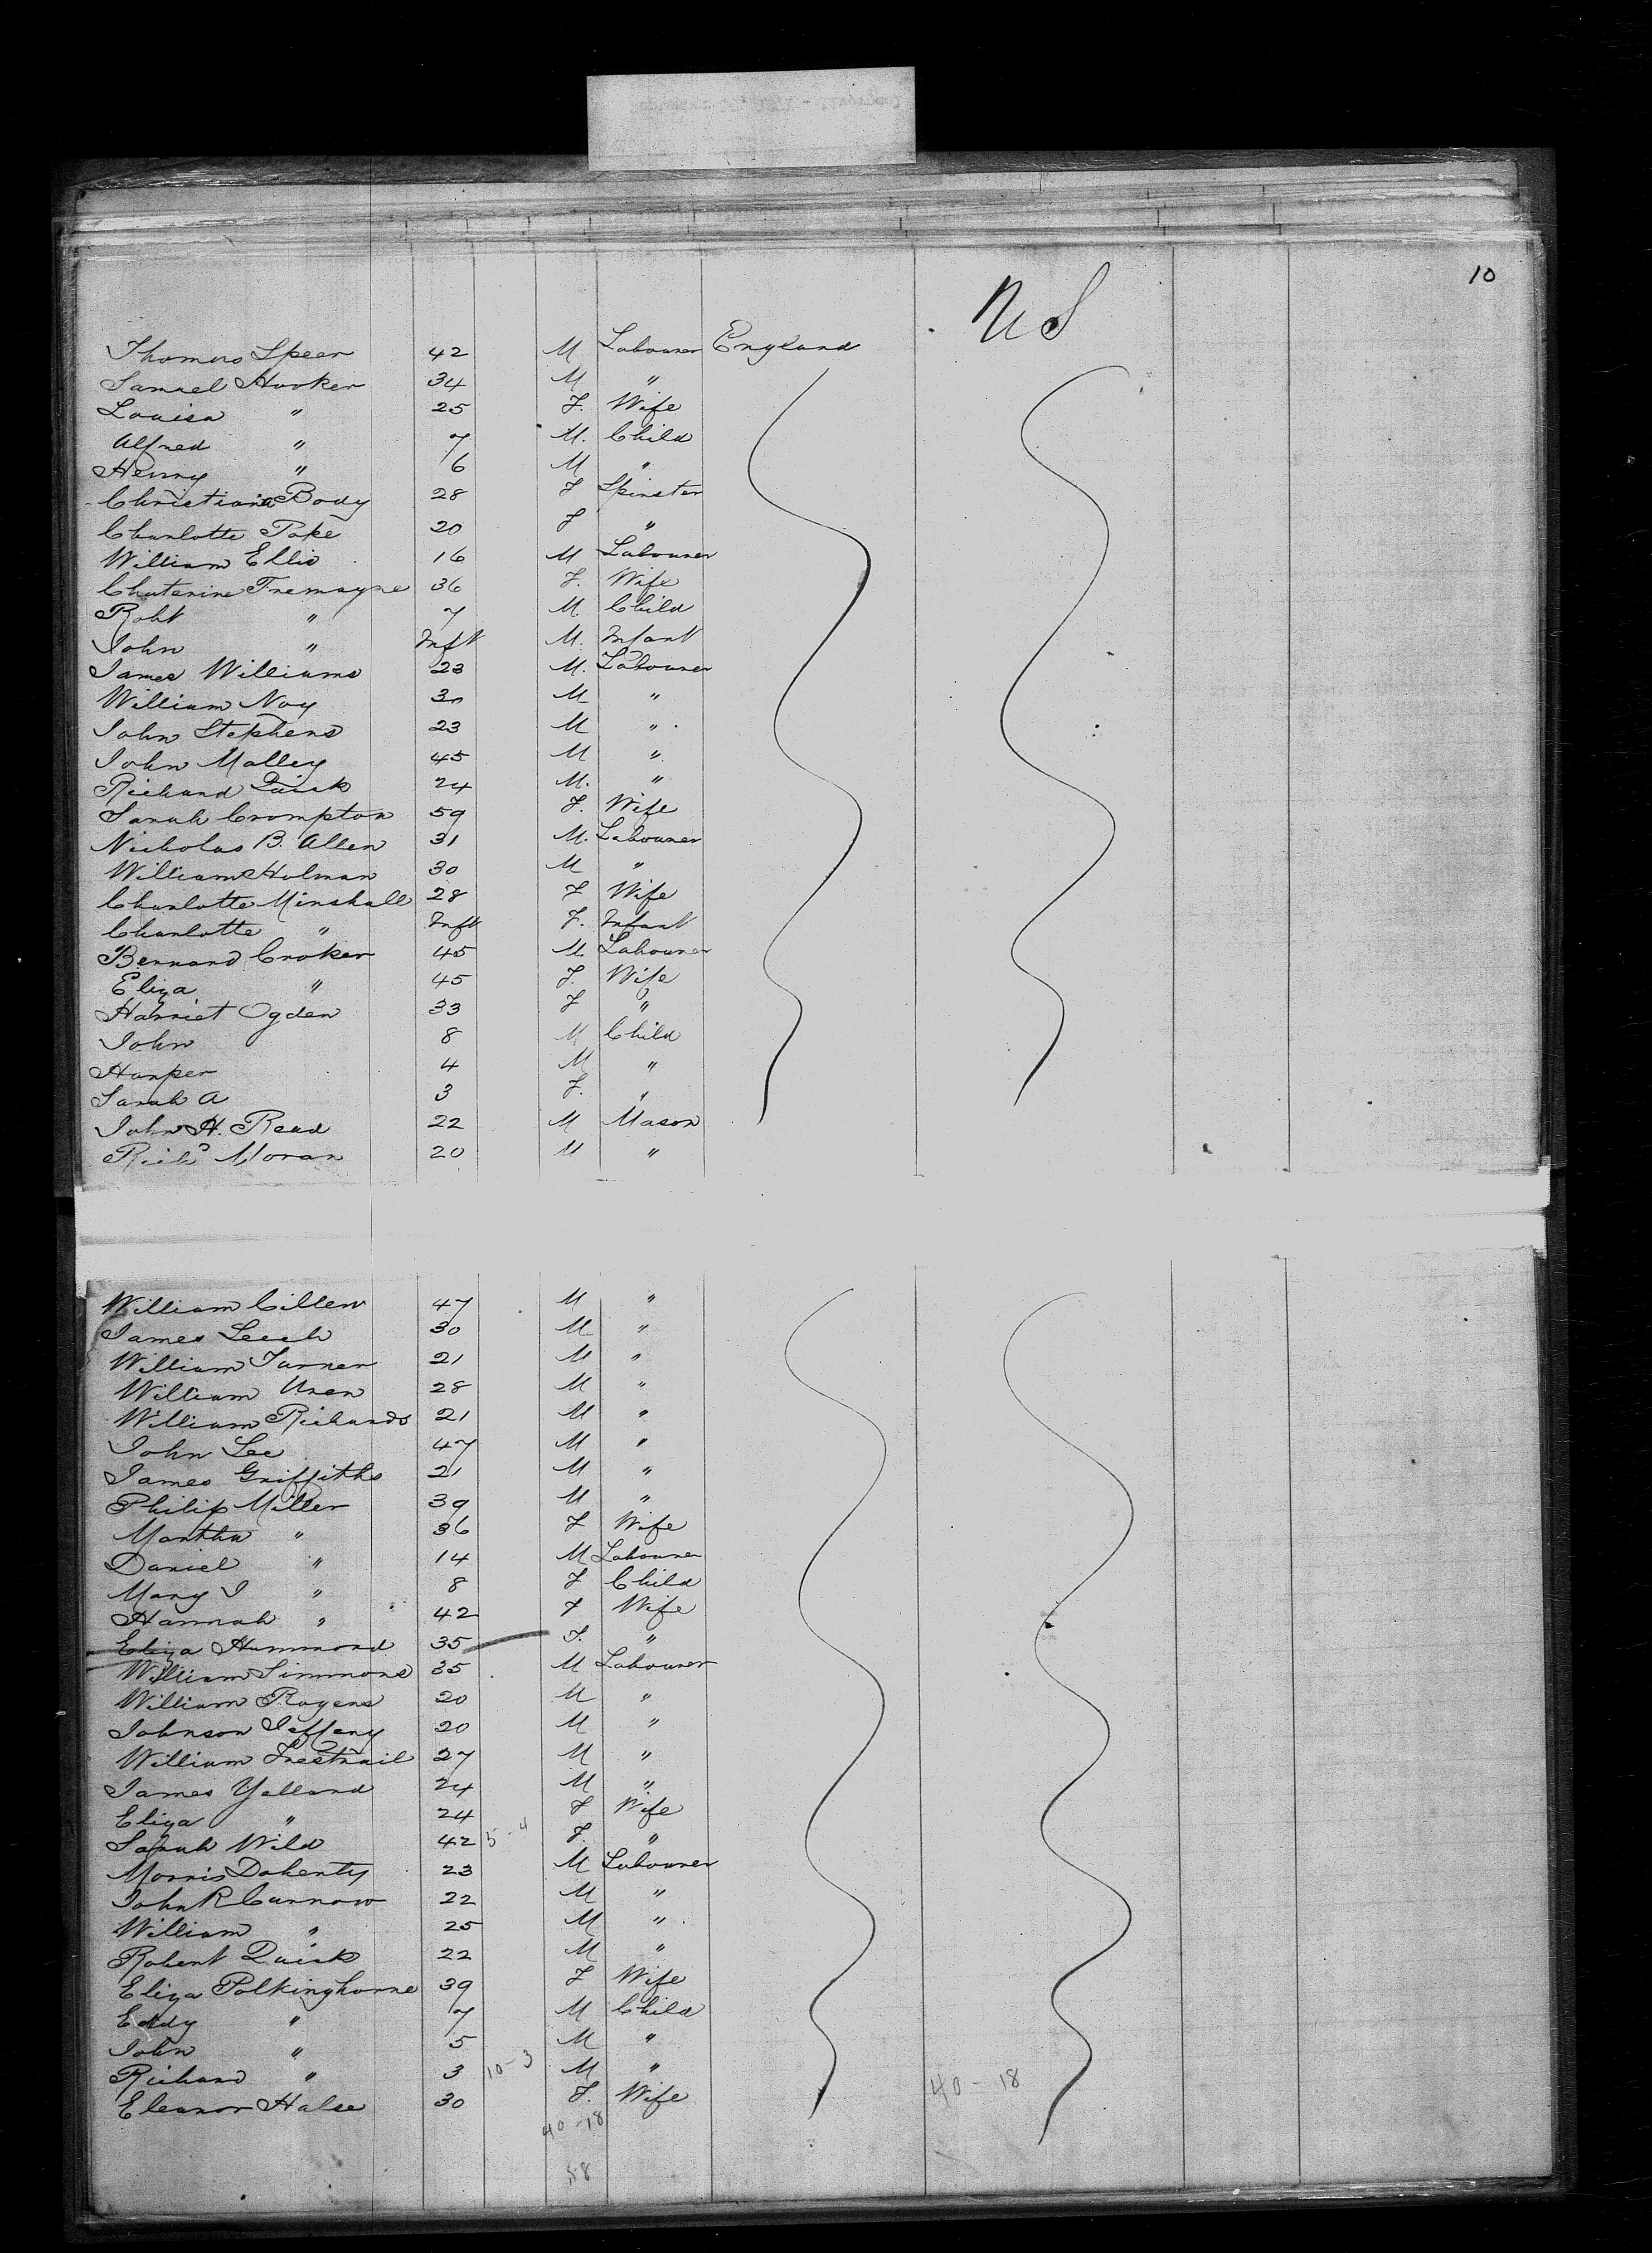 10
U S
Thomas Speer 42 M Labourer England
Samuel Hooker 34 M "
Louisa " 25 F. Wife
Alfred " 7 M. Child
Henry " 6 M "
Christiana Body 28 F Spinster
Charlotte Pope 20 F "
William Ellis 16 M Labourer
Chaterine Tremayne 36 F. Wife
Robt " 7 M. Child
John " Inft M. Infant
James Williams 23 M. Labourer
William Noy 30 M "
John Stephens 23 M "
John Malley 45 M "
Richard Quick 24 M. "
Sarah Crompton 59 F. Wife
Nicholas B. Allen 31 M. Labourer
William Holman 30 M "
Charlotte Minshall 28 F Wife
Charlotte " Inft F. Infant
Bernard Croker 45 M Labourer
Eliza " 45 F. Wife
Harriet Ogden 33 F "
John 8 M Child
Harper 4 M "
Sarah A 3 F. "
John H. Read 22 M Mason
Richd Moran 20 M "
William Cillew 47 M "
James Leech 30 M "
William Turner 21 M "
William Uren 28 M "
William Richards 21 M "
John Lee 47 M "
James Griffiths 21 M "
Philip Miller 39 M "
Martha " 36 F Wife
Daniel " 14 M Labourer
Mary J " 8 F Child
Hannah " 42 F Wife
Eliza Hammond 35 F. "
William Simmons 35 M Labourer
William Rogers 20 M "
Johnson Jeffery 20 M "
William Trestrail 27 M "
James Yelland 24 M "
Eliza " 24 F Wife
Sarah Wild 42 5-4 F. "
Morris Doherty 23 M Labourer
John R Curnow 22 M "
William " 25 M "
Robert Quick 22 M "
Eliza Polkinghorne 39 F Wife
Eddy " 7 M Child
John " 5 M "
Richard " 3 10-3 M "
Eleanor Halse 30 F. Wife
40-18 40-18
58